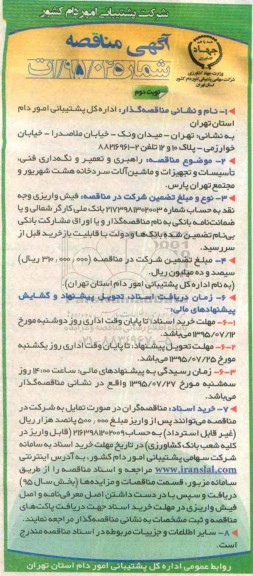 شرکت پشتیبانی امور دام کشور
آگهی مناقصه
شماره ۹۵/۰۲۵/ات
نوبت دوم
۱- نام و نشانی مناقصه‌گذار: اداره کل پشتیبانی امور دام
استان تهران
به نشانی: تهران - میدان ونک - خیابان ملاصدرا - خیابان
خوارزمی - پلاک ۱۰ و ۱۲ تلفن ۲-۸۸۲۱۶۹۶۱
۲- موضوع مناقصه: راهبری و تعمیر و نگه‌داری فنی،
تأسیسات و تجهیزات و ماشین‌آلات سردخانه هشت شهریور و
مجتمع تهران پارس.
۳- نوع و مبلغ تضمین شرکت در مناقصه: فیش واریزی وجه
نقد به حساب شماره ۲۱۷۳۹۸۱۳۰۲۰۰۳ بانک ملی کارگر شمالی و یا
ضمانت‌نامه بانکی به نام مناقصه‌گذار و یا اوراق مشارکت بانکی
بی‌نام تضمین شده بانک‌ها و دولت با قابلیت بازخرید قبل از
سررسید.
۴- مبلغ تضمین شرکت در مناقصه: (۳۱۰/۰۰۰/۰۰۰ ریال)
سیصد و ده میلیون ریال.
(به نام اداره کل پشتیبانی امور دام استان تهران).
۶- زمان دریافت اسناد، تحویل پیشنهاد و گشایش
پیشنهادهای مالی:
۶-۱- مهلت خرید اسناد: تا پایان وقت اداری روز دوشنبه مورخ
۱۳۹۵/۰۷/۱۲ می‌باشد.
۶-۲- مهلت تحویل پیشنهاد: تا پایان وقت اداری روز یکشنبه
مورخ ۱۳۹۵/۰۷/۲۵ می‌باشد.
۶-۳- زمان رسیدگی به پیشنهادهای مالی: ساعت ۱۴:۰۰ روز
سه‌شنبه مورخ ۱۳۹۵/۰۷/۲۷ واقع در نشانی مناقصه‌گذار
می‌باشد.
۷- خرید اسناد: مناقصه‌گران در صورت تمایل به شرکت در
مناقصه می‌توانند پس از واریز مبلغ ۵۰۰/۰۰۰ پانصد هزار ریال
(غیر قابل استرداد) به حساب (قابل واریز در
کلیه شعب بانک کشاورزی) در تاریخ مهلت خرید اسناد به سامانه
شرکت سهامی پشتیبانی امور دام کشور، به آدرس اینترنتی
www.iranslal.com مراجعه و اسناد مناقصه را از طریق
سامانه مزبور، قسمت مناقصات و مزایده‌ها (بخش سال ۹۵)
دریافت و سپس با در دست داشتن اصل معرفی‌نامه و اصل
فیش واریزی در مهلت خرید اسناد جهت دریافت پاکت‌های
مناقصه و ثبت مشخصات به نشانی مناقصه‌گذار مراجعه نمایند.
۸- سایر اطلاعات و جزییات مربوطه در اسناد مناقصه مندرج
است.
روابط عمومی اداره کل پشتیبانی امور دام استان تهران